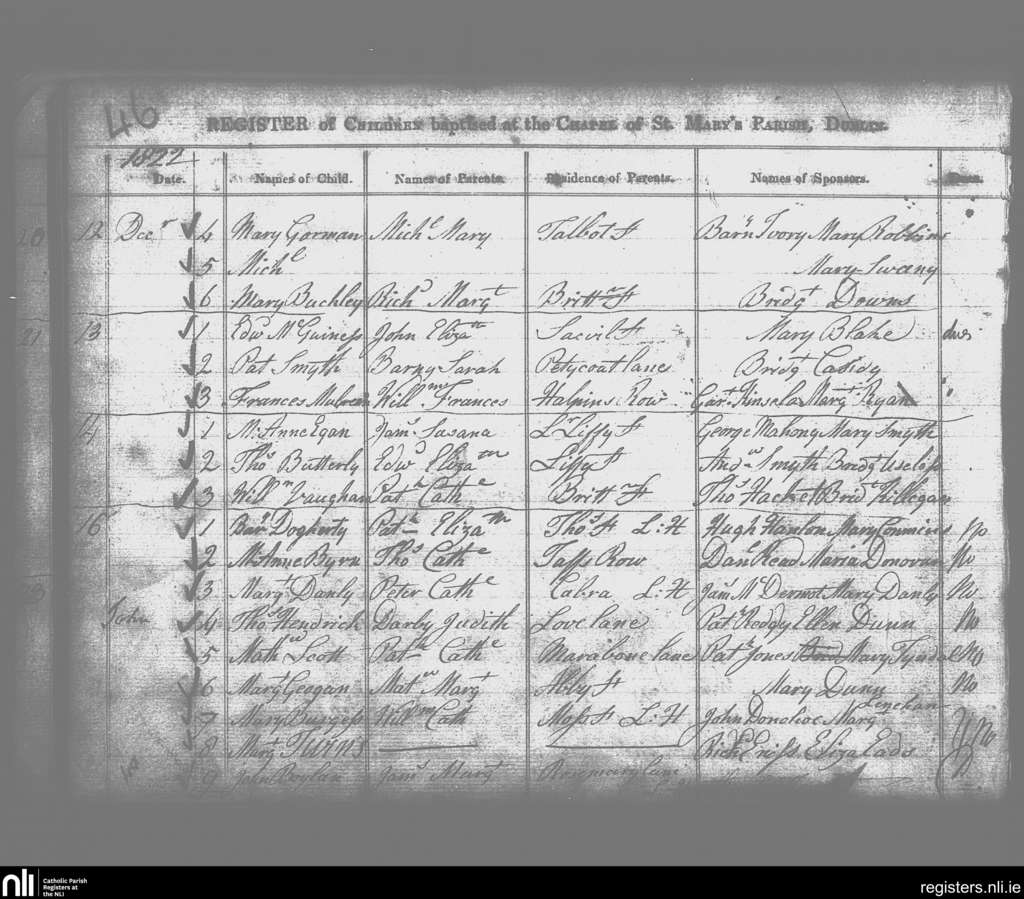 46
REGISTER of CHILDREN baptised at the CHAPEL of St. MARY'S PARISH, DUBLIN.
1822
Date. Names of Child. Names of Parents. Residence of Parents. Names of Sponsors.
12 Decr 4 Mary Gorman Michl Mary Talbot St Barnw Ivory Mary Robbins
5 Michl Mary Sweany
6 Mary Buckley Richd Margt Brittn St Bridgt Downs
13 1 Edwd McGuiness John Elizath Sacvil St Mary Blake
2 Pat Smyth Barny Sarah Petycoat lane Bridgt Casidy
3 Frances Will'm Frances Halpins Row Gart Kinsela Margt Ryan
14 1 M: Anne Egan Jams Susana Lr Liffy St George Mahony Mary Smyth
2 Thos Butterly Edwd Elizath Liffy St Andw Smyth Bridgt
3 Willm Vaughan Patk Cathe Brittn St Thos Hacket Bridt Killegan
16 1 Barnw Dogherty Patk Elizath Thos St L:H Hugh Hanlon Mary No
2 M: Anne Byrn Thos Cathe Taffs Row Danl Read Maria Donovan No
3 Margt Danly Peter Cathe Cabra L:H Jams McDermot Mary Danly No
John 4 Thos Hendrick Darby Judith Love lane Patk Reddy Ellen Dunn No
5 Mathw Scott Patk Cathe Marabone lane Patk Jones Mary No
6 Margt Geogan Matw Margt Abby St Mary Dunn No
Lenehan
7 Mary Burgess Willm Cath Moss St L:H John Donohoe Marg
8 Margt Richd Eliza Eades No
9 John Boylan Jams Margt Rosemary lane
nli Catholic Parish
Registers at
the NLI
registers.nli.ie